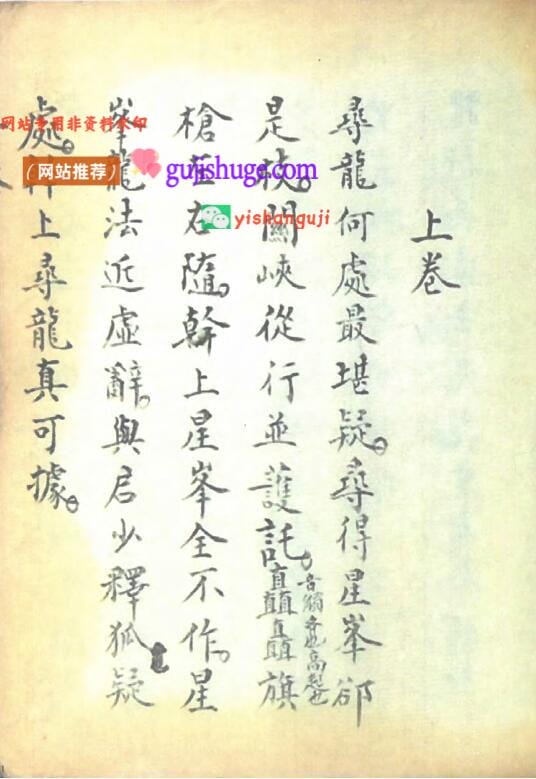 上卷
尋龍何處最堪疑。尋得星峯郤
是枝。關峽從行並護託。矗矗旗
音觸齐也高起也
槍左右隨。幹上星峯全不作。星
峯龍法近虛辭。與君少釋狐疑
處。幹上尋龍真可據。
网站专用非资料水印
（网站推荐）
gujishuge.com
yishanguji